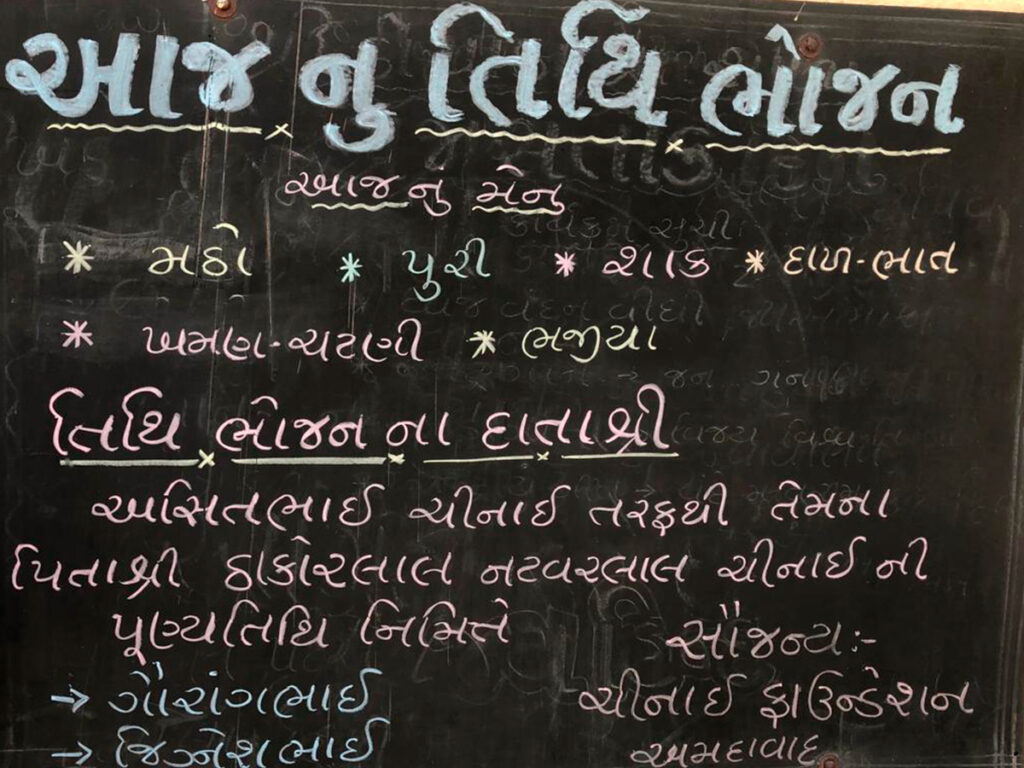 આજ નુ તિથિ ભોજન
આજ નું મેનુ
* મઠો * પુરી * શાક * દાળ-ભાત
* ખમણ-ચટણી * ભજીયા
તિથિ ભોજન ના દાતાશ્રી
અસિતભાઈ ચીનાઈ તરફથી તેમના
પિતાશ્રી ઠાકોરલાલ નટવરલાલ ચીનાઈ ની
પૂણ્યતિથિ નિમિતે
સૌજન્ય:-
→ ગૌરાંગભાઈ ચીનાઈ ફાઉન્ડેશન
→ જિગ્નેશભાઈ અમદાવાદ